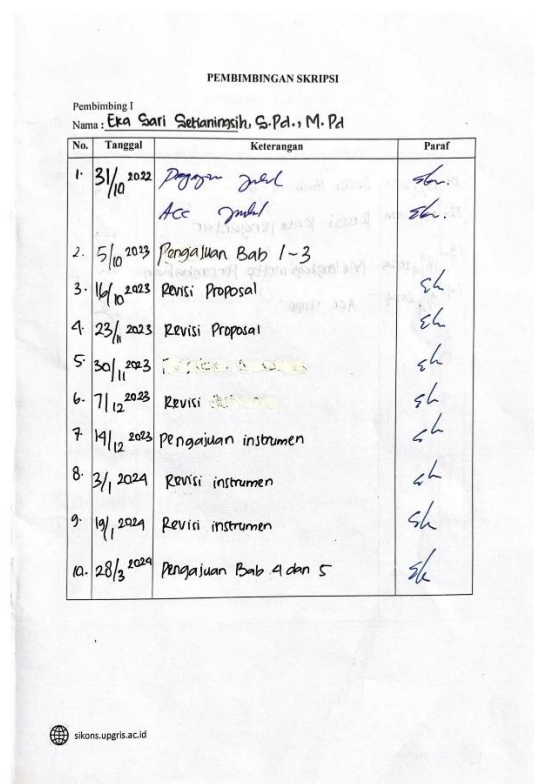 PEMBIMBINGAN SKRIPSI
Pembimbing I
Nama : Eka Sari Setianingsih, S.Pd., M.Pd
No. Tanggal Keterangan Paraf
1. 31/10 2022 Pengajuan judul
Acc judul
2. 5/10 2023 Pengajuan Bab 1-3
3. 16/10 2023 Revisi Proposal
4. 23/11 2023 Revisi Proposal
5. 30/11 2023
6. 7/12 2023 Revisi
7. 14/12 2023 Pengajuan instrumen
8. 3/1 2024 Revisi instrumen
9. 19/1 2024 Revisi instrumen
10. 28/3 2024 Pengajuan Bab 4 dan 5
sikons.upgris.ac.id